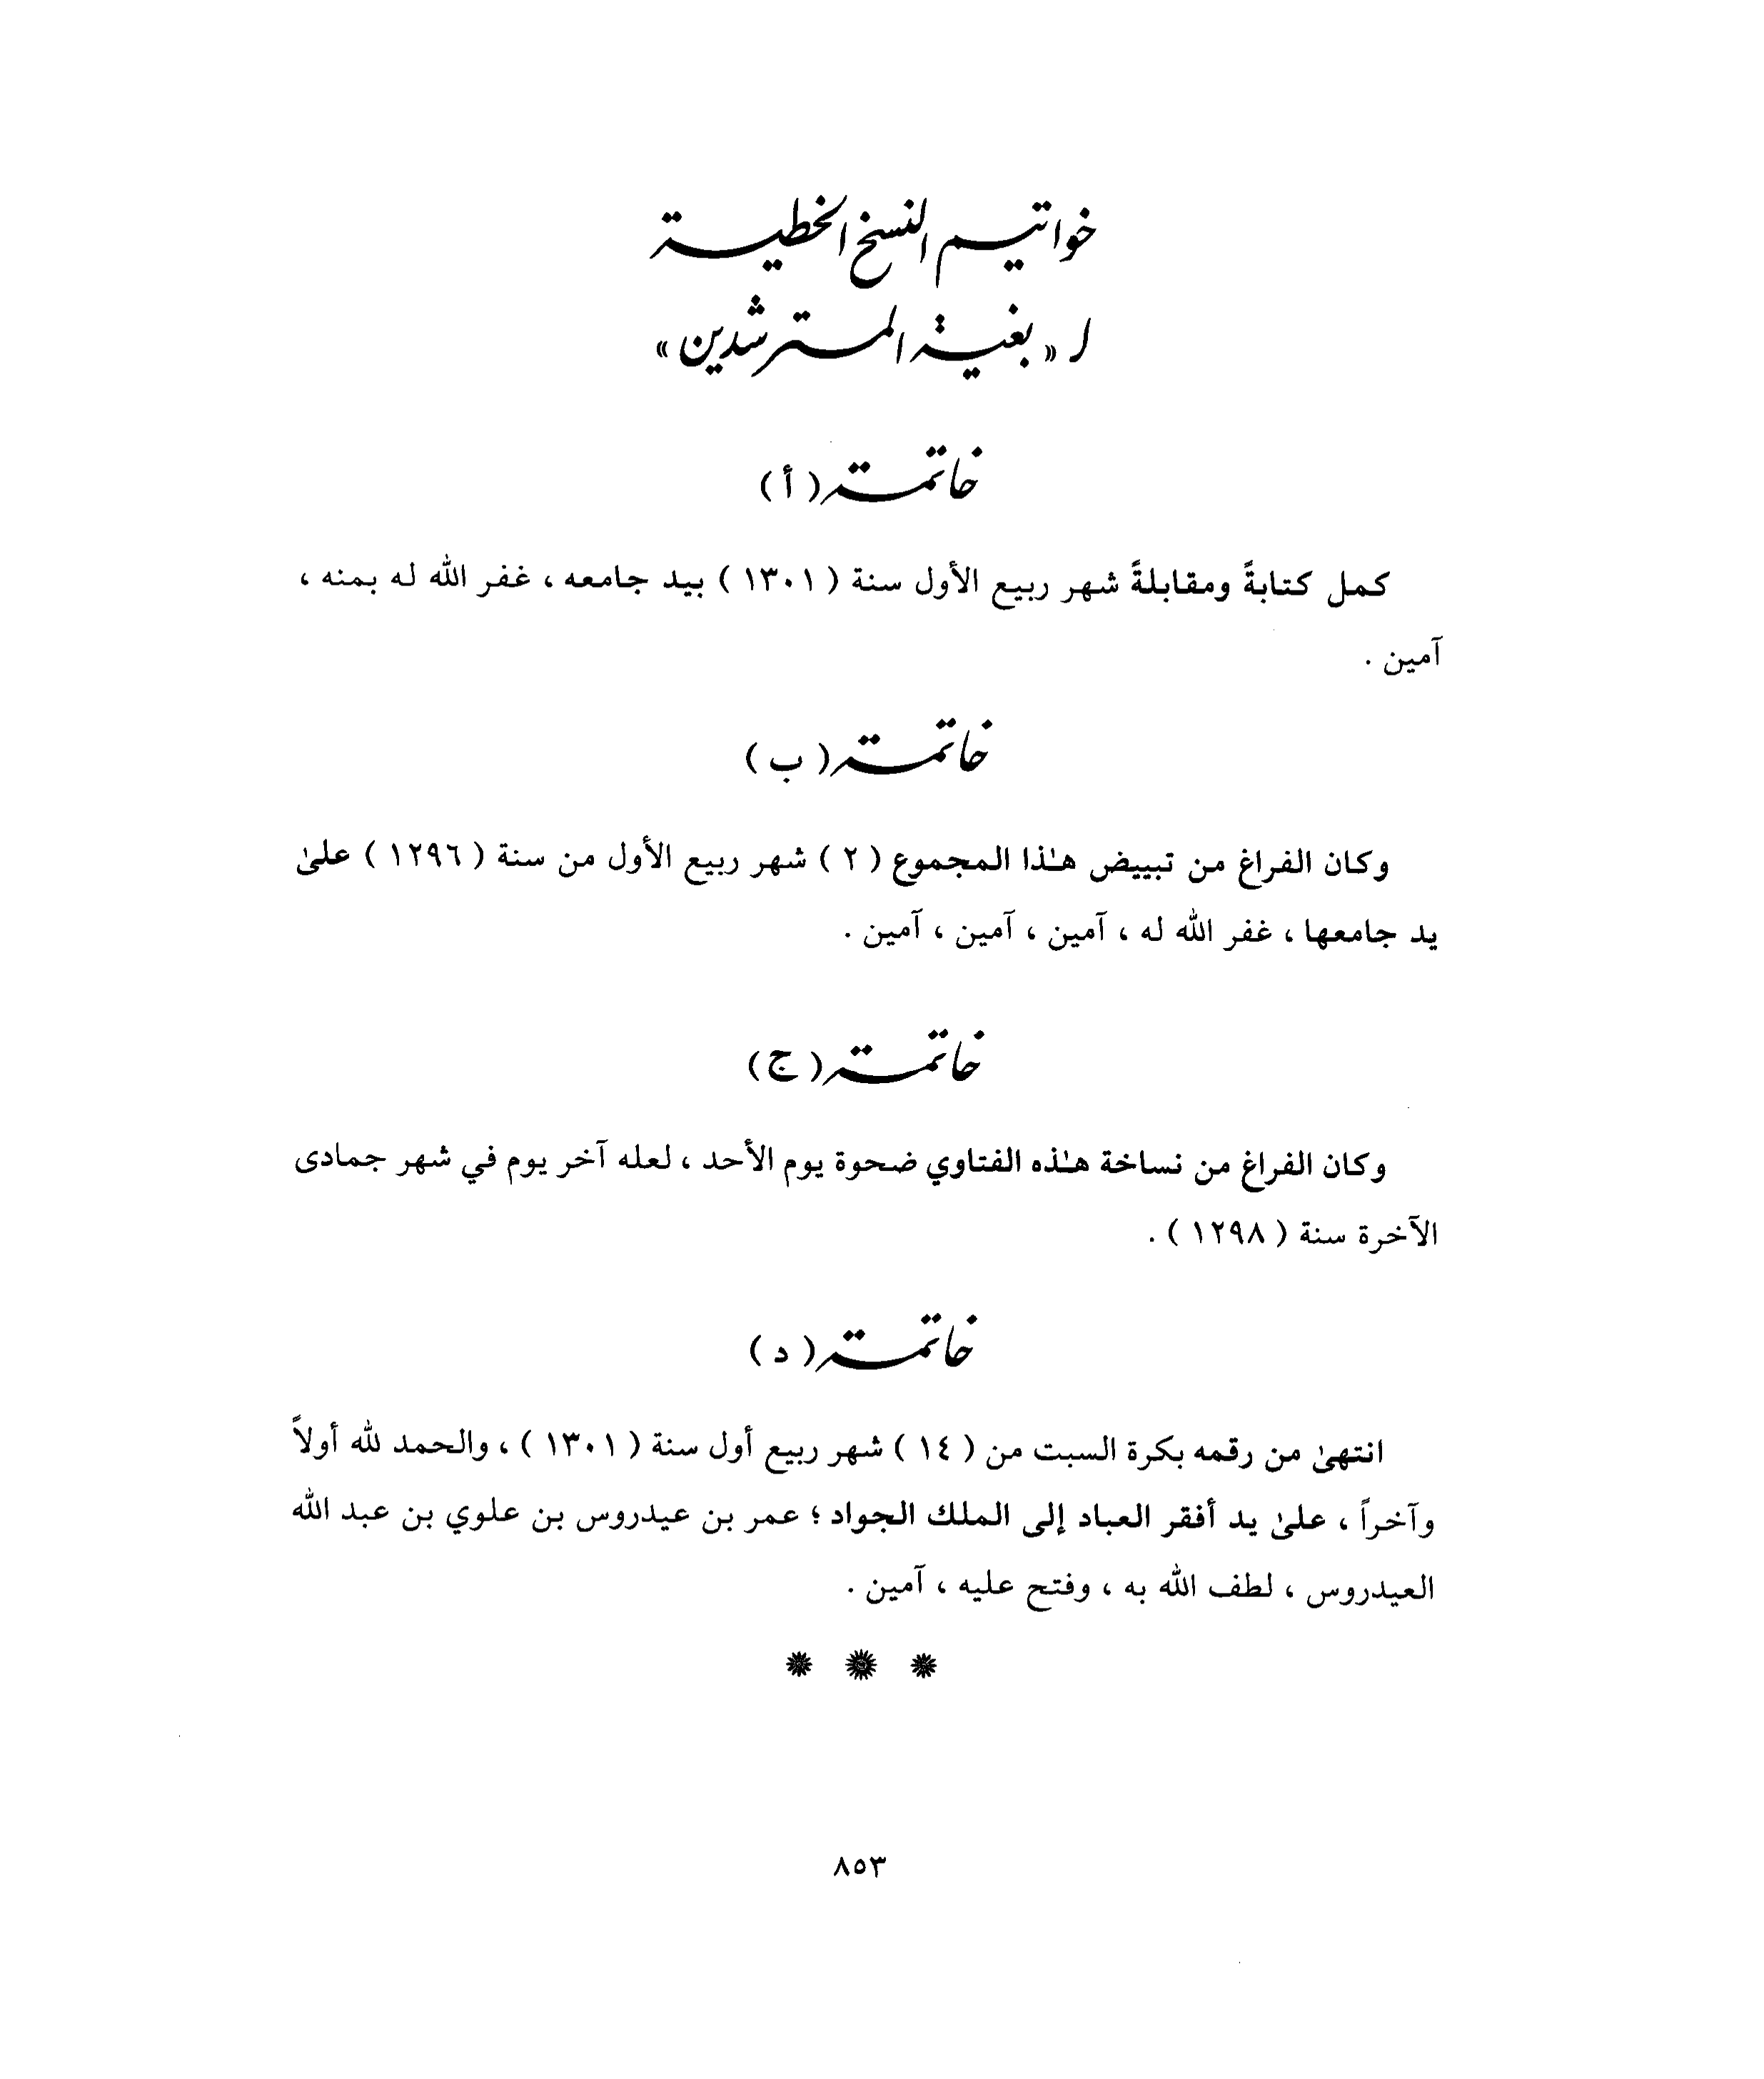 خواتيم النسخ الخطية
لـ « بغية المسترشدين »
خاتمة ( أ )
كمل كتابةً ومقابلةً شهر ربيع الأول سنة ( ١٣٠١ ) بيد جامعه ، غفر الله له بمنه ،
آمين .
خاتمة ( ب )
وكان الفراغ من تبييض هـٰذا المجموع ( ٢ ) شهر ربيع الأول من سنة ( ١٢٩٦ ) علىٰ
يد جامعها ، غفر الله له ، آمين ، آمين ، آمين .
خاتمة ( ج )
وكان الفراغ من نساخة هـٰذه الفتاوي ضحوة يوم الأحد ، لعله آخر يوم في شهر جمادى
الآخرة سنة ( ١٢٩٨ ) .
خاتمة ( د )
انتهىٰ من رقمه بكرة السبت من ( ١٤ ) شهر ربيع أول سنة ( ١٣٠١ ) ، والحمد لله أولاً
وآخراً ، علىٰ يد أفقر العباد إلى الملك الجواد ؛ عمر بن عيدروس بن علوي بن عبد الله
العيدروس ، لطف الله به ، وفتح عليه ، آمين .
٨٥٣